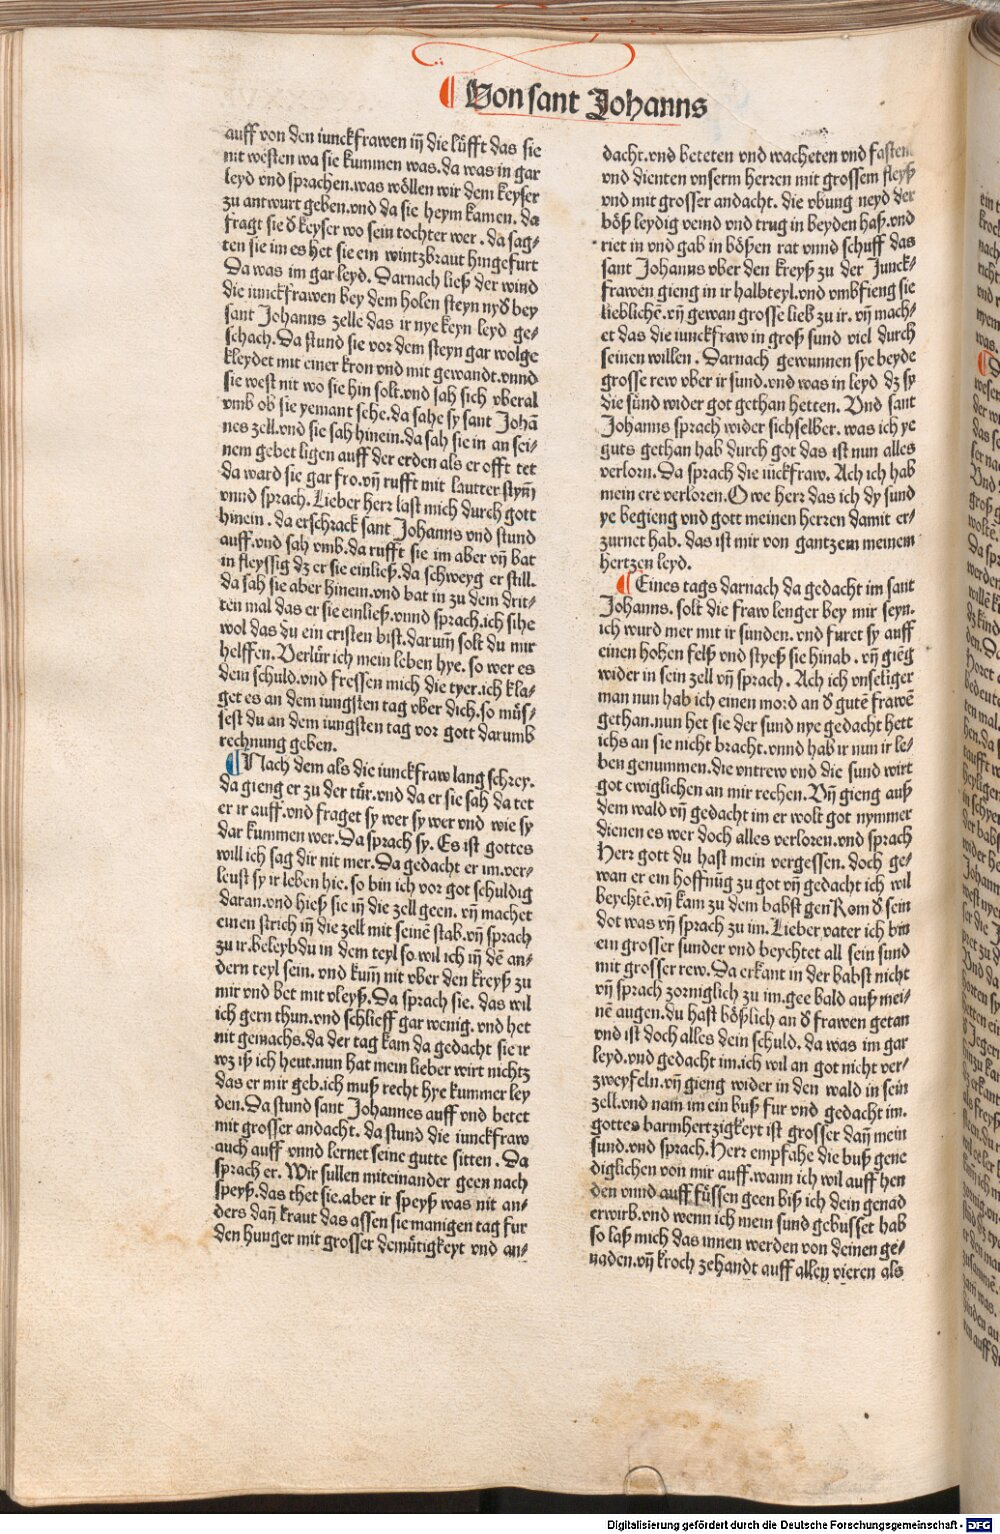 ¶ Von sant Johanns
auff von den iunckfrawen iñ die lüfft das sie
nit westen wa sie kummen was.da was in gar
leyd vnd sprachen.was wöllen wir dem keyser
zu antwurt geben.vnd da sie heym kamen. da
fragt sie ď keyser wo sein tochter wer . da sag⸗
ten sie im es het sie ein wintzbraut hingefurt
Da was im gar leyd. Darnach ließ der wind
die iunckfrawen bey dem holen steyn nyď bey
sant Johanns zelle das ir nye keyn leyd ge⸗
schach.Da stund sie vor dem steyn gar wolge
kleydet mit einer kron vnd mit gewandt.vnnd
sie west nit wo sie hin solt.vnd sah sich vberal
vmb ob sie yemant sehe.da sahe sy sant Johā
nes zell.vnd sie sah hinein.da sah sie in an sei⸗
nem gebet ligen auff der erden als er offt tet
da ward sie gar fro.vñ rufft mit lautter stym̄
vnnd sprach. Lieber herr laß mich durch gott
hinein . da erschrack sant Johanns vnd stund
auff.vnd sah vmb.da rufft sie im aber vñ bat
in fleyssig dz er sie einließ.da schweyg er still.
da sah sie aber hinein.vnd bat in zu dem drit⸗
ten mal das er sie einließ.vnnd sprach.ich sihe
wol das du ein cristen bist.darum̄ solt du mir
helffen. Verlür ich mein leben hye. so wer es
dein schuld.vnd fressen mich die tyer.ich kla⸗
get es an dem iungsten tag vber dich.so müs⸗
sest du an dem iungsten tag vor gott darumb
rechnung geben.
¶ Nach dem als die iunckfraw lang schrey.
da gieng er zu der tür.vnd da er sie sah da tet
er ir auff.vnd fraget sy wer sy wer vnd wie sy
dar kummen wer.Da sprach sy. Es ist gottes
will ich sag dir nit mer.Da gedacht er im.ver⸗
leust sy ir leben hie. so bin ich vor got schuldig
daran.vnd hieß sie iñ die zell geen. vñ machet
einen strich iñ die zell mit seinē stab.vñ sprach
zu ir.beleyb du in dem teyl so wil ich iñ dē an⸗
dern teyl sein. vnd kum̄ nit vber den kreyß zu
mir vnd bet mit vleyß.Da sprach sie. das wil
ich gern thun.vnd schlieff gar wenig. vnd het
nit gemachs.da der tag kam da gedacht sie ir
wz iß ich heut.nun hat mein lieber wirt nichtz
das er mir geb.ich muß recht hye kummer ley
den.Da stund sant Johannes auff vnd betet
mit grosser andacht. da stund die iunckfraw
auch auff vnnd lernet seine gutte sitten . Da
sprach er. Wir sullen miteinander geen nach
speyß.das thet sie.aber ir speyß was nit an⸗
ders dañ kraut das assen sie manigen tag fur
den hunger mit grosser demütigkeyt vnd an⸗
dacht.vnd beteten vnd wacheten vnd fasten
vnd dienten vnserm herren mit grossem fleyß
vnd mit grosser andacht. die vbung neyd der
böß leydig veind vnd trug in beyden haß.vnd
riet in vnd gab in bößen rat vnnd schuff das
sant Johanns vber den kreyß zu der Junck⸗
frawen gieng in ir halbteyl.vnd vmbfieng sie
lieblichē.vñ gewan grosse lieb zu ir. vñ mach⸗
et das die iunckfraw in groß sund viel durch
seinen willen . Darnach gewunnen sye beyde
grosse rew vber ir sund.vnd was in leyd dz sy
die sünd wider got gethan hetten. Vnd sant
Johanns sprach wider sichselber. was ich ye
guts gethan hab durch got das ist nun alles
verlorn.Da sprach die iūckfraw. Ach ich hab
mein ere verloren.O we herr das ich dy sund
ye begieng vnd gott meinen herren damit er⸗
zurnet hab. das ist mir von gantzem meinem
hertzen leyd.
¶ Eines tags darnach da gedacht im sant
Johanns. solt die fraw lenger bey mir seyn.
ich wurd mer mit ir sunden. vnd furet sy auff
einen hohen felß vnd styeß sie hinab . vñ giēg
wider in sein zell vñ sprach . Ach ich vnseliger
man nun hab ich einen mord an ď gutē frawē
gethan.nun het sie der sund nye gedacht hett
ichs an sie nicht bracht.vnnd hab ir nun ir le⸗
ben genummen.die vntrew vnd die sund wirt
got ewiglichen an mir rechen. Vñ gieng auß
dem wald vñ gedacht im er wolt got nymmer
dienen es wer doch alles verloren.vnd sprach
Herr gott du hast mein vergessen. doch ge⸗
wan er ein hoffnūg zu got vñ gedacht ich wil
beychtē.vñ kam zu dem babst gen Rom ď sein
dot was vñ sprach zu im. Lieber vater ich bin
ein grosser sunder vnd beychtet all sein sund
mit grosser rew. Da erkant in der babst nicht
vñ sprach zorniglich zu im.gee bald auß mei⸗
nē augen.du hast bößlich an ď frawen getan
vnd ist doch alles dein schuld. da was im gar
leyd.vnd gedacht im.ich wil an got nicht ver⸗
zweyfeln.vñ gieng wider in den wald in sein
zell.vnd nam im ein buß fur vnd gedacht im.
gottes barmhertzigkeyt ist grosser dañ mein
sund.vnd sprach.Herr empfahe die buß gene
diglichen von mir auff.wann ich wil auff hen
den vnnd auff füssen geen biß ich dein genad
erwirb.vnd wenn ich mein sund gebusset hab
so laß mich das innen werden von deinen ge⸗
naden.vñ kroch zehandt auff allen vieren als
Digitalisierung gefördert durch die Deutsche Forschungsgemeinschaft - DFG